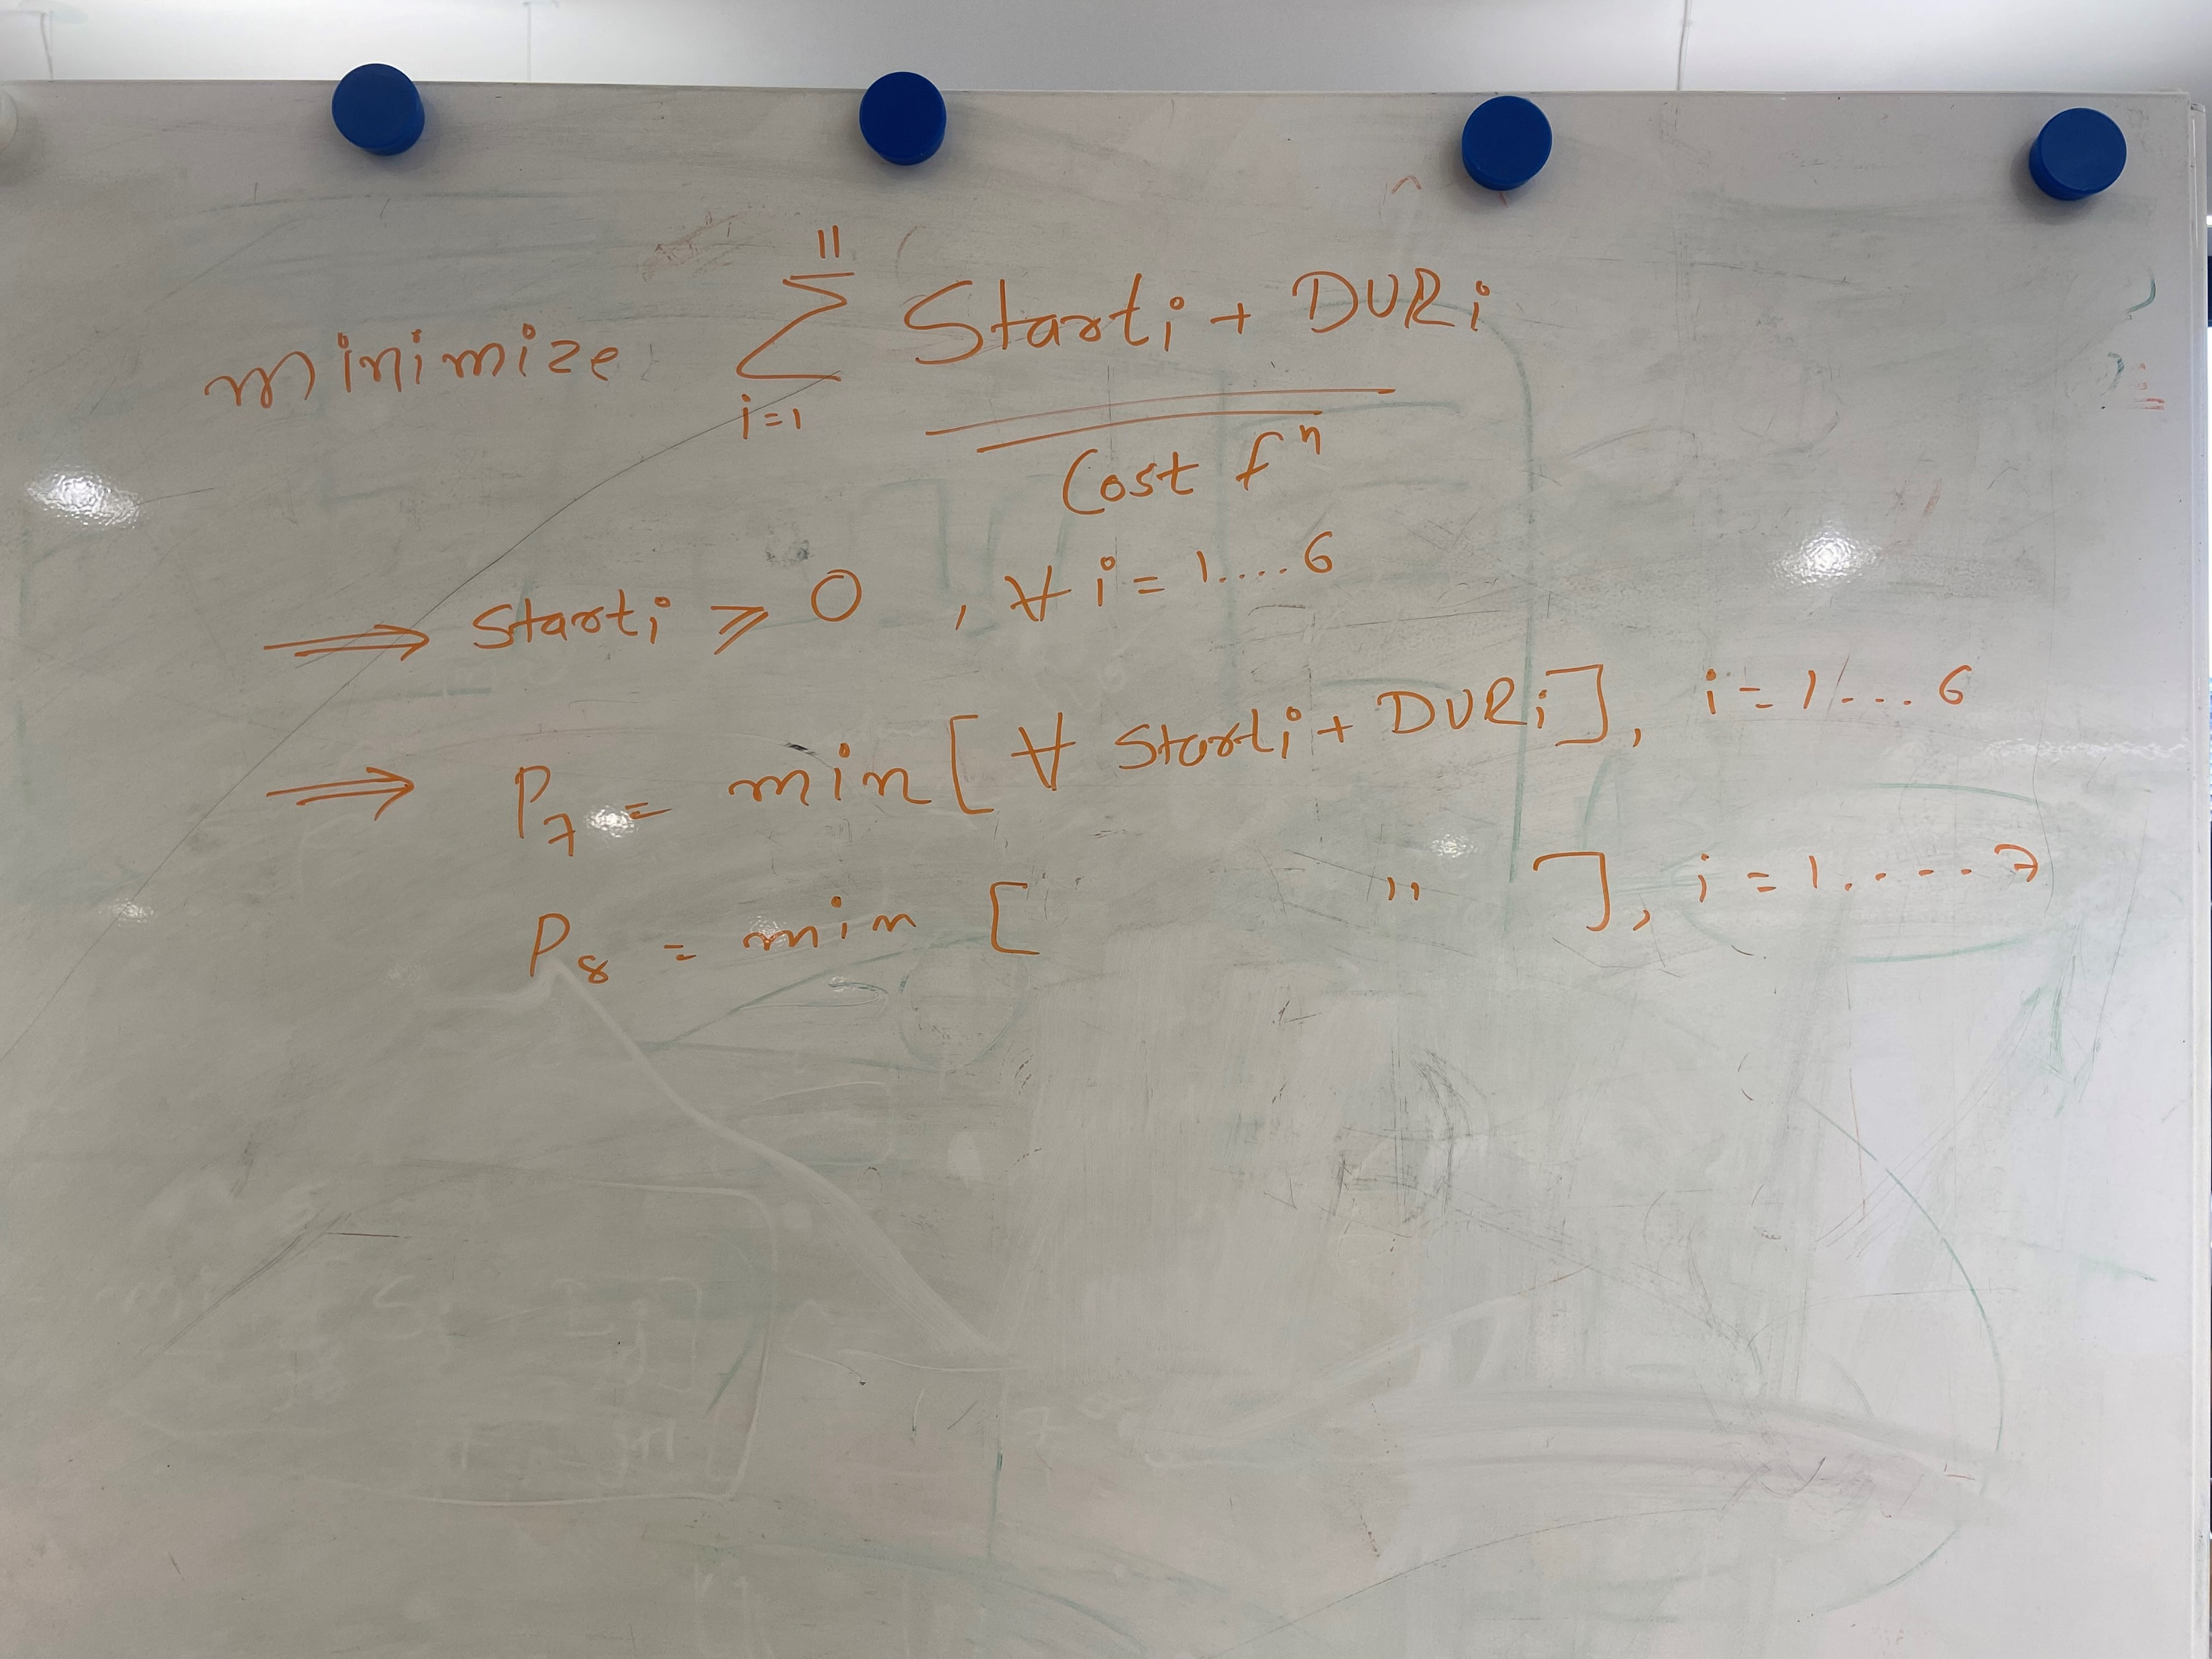 minimize 11 Σ i=1 Starti + DURi
Cost fⁿ
⇒ Starti ≥ 0 , ∀ i = 1....6
⇒ P7 = min [ ∀ Starti + DURi ], i = 1....6
P8 = min [ " ], i = 1.....7